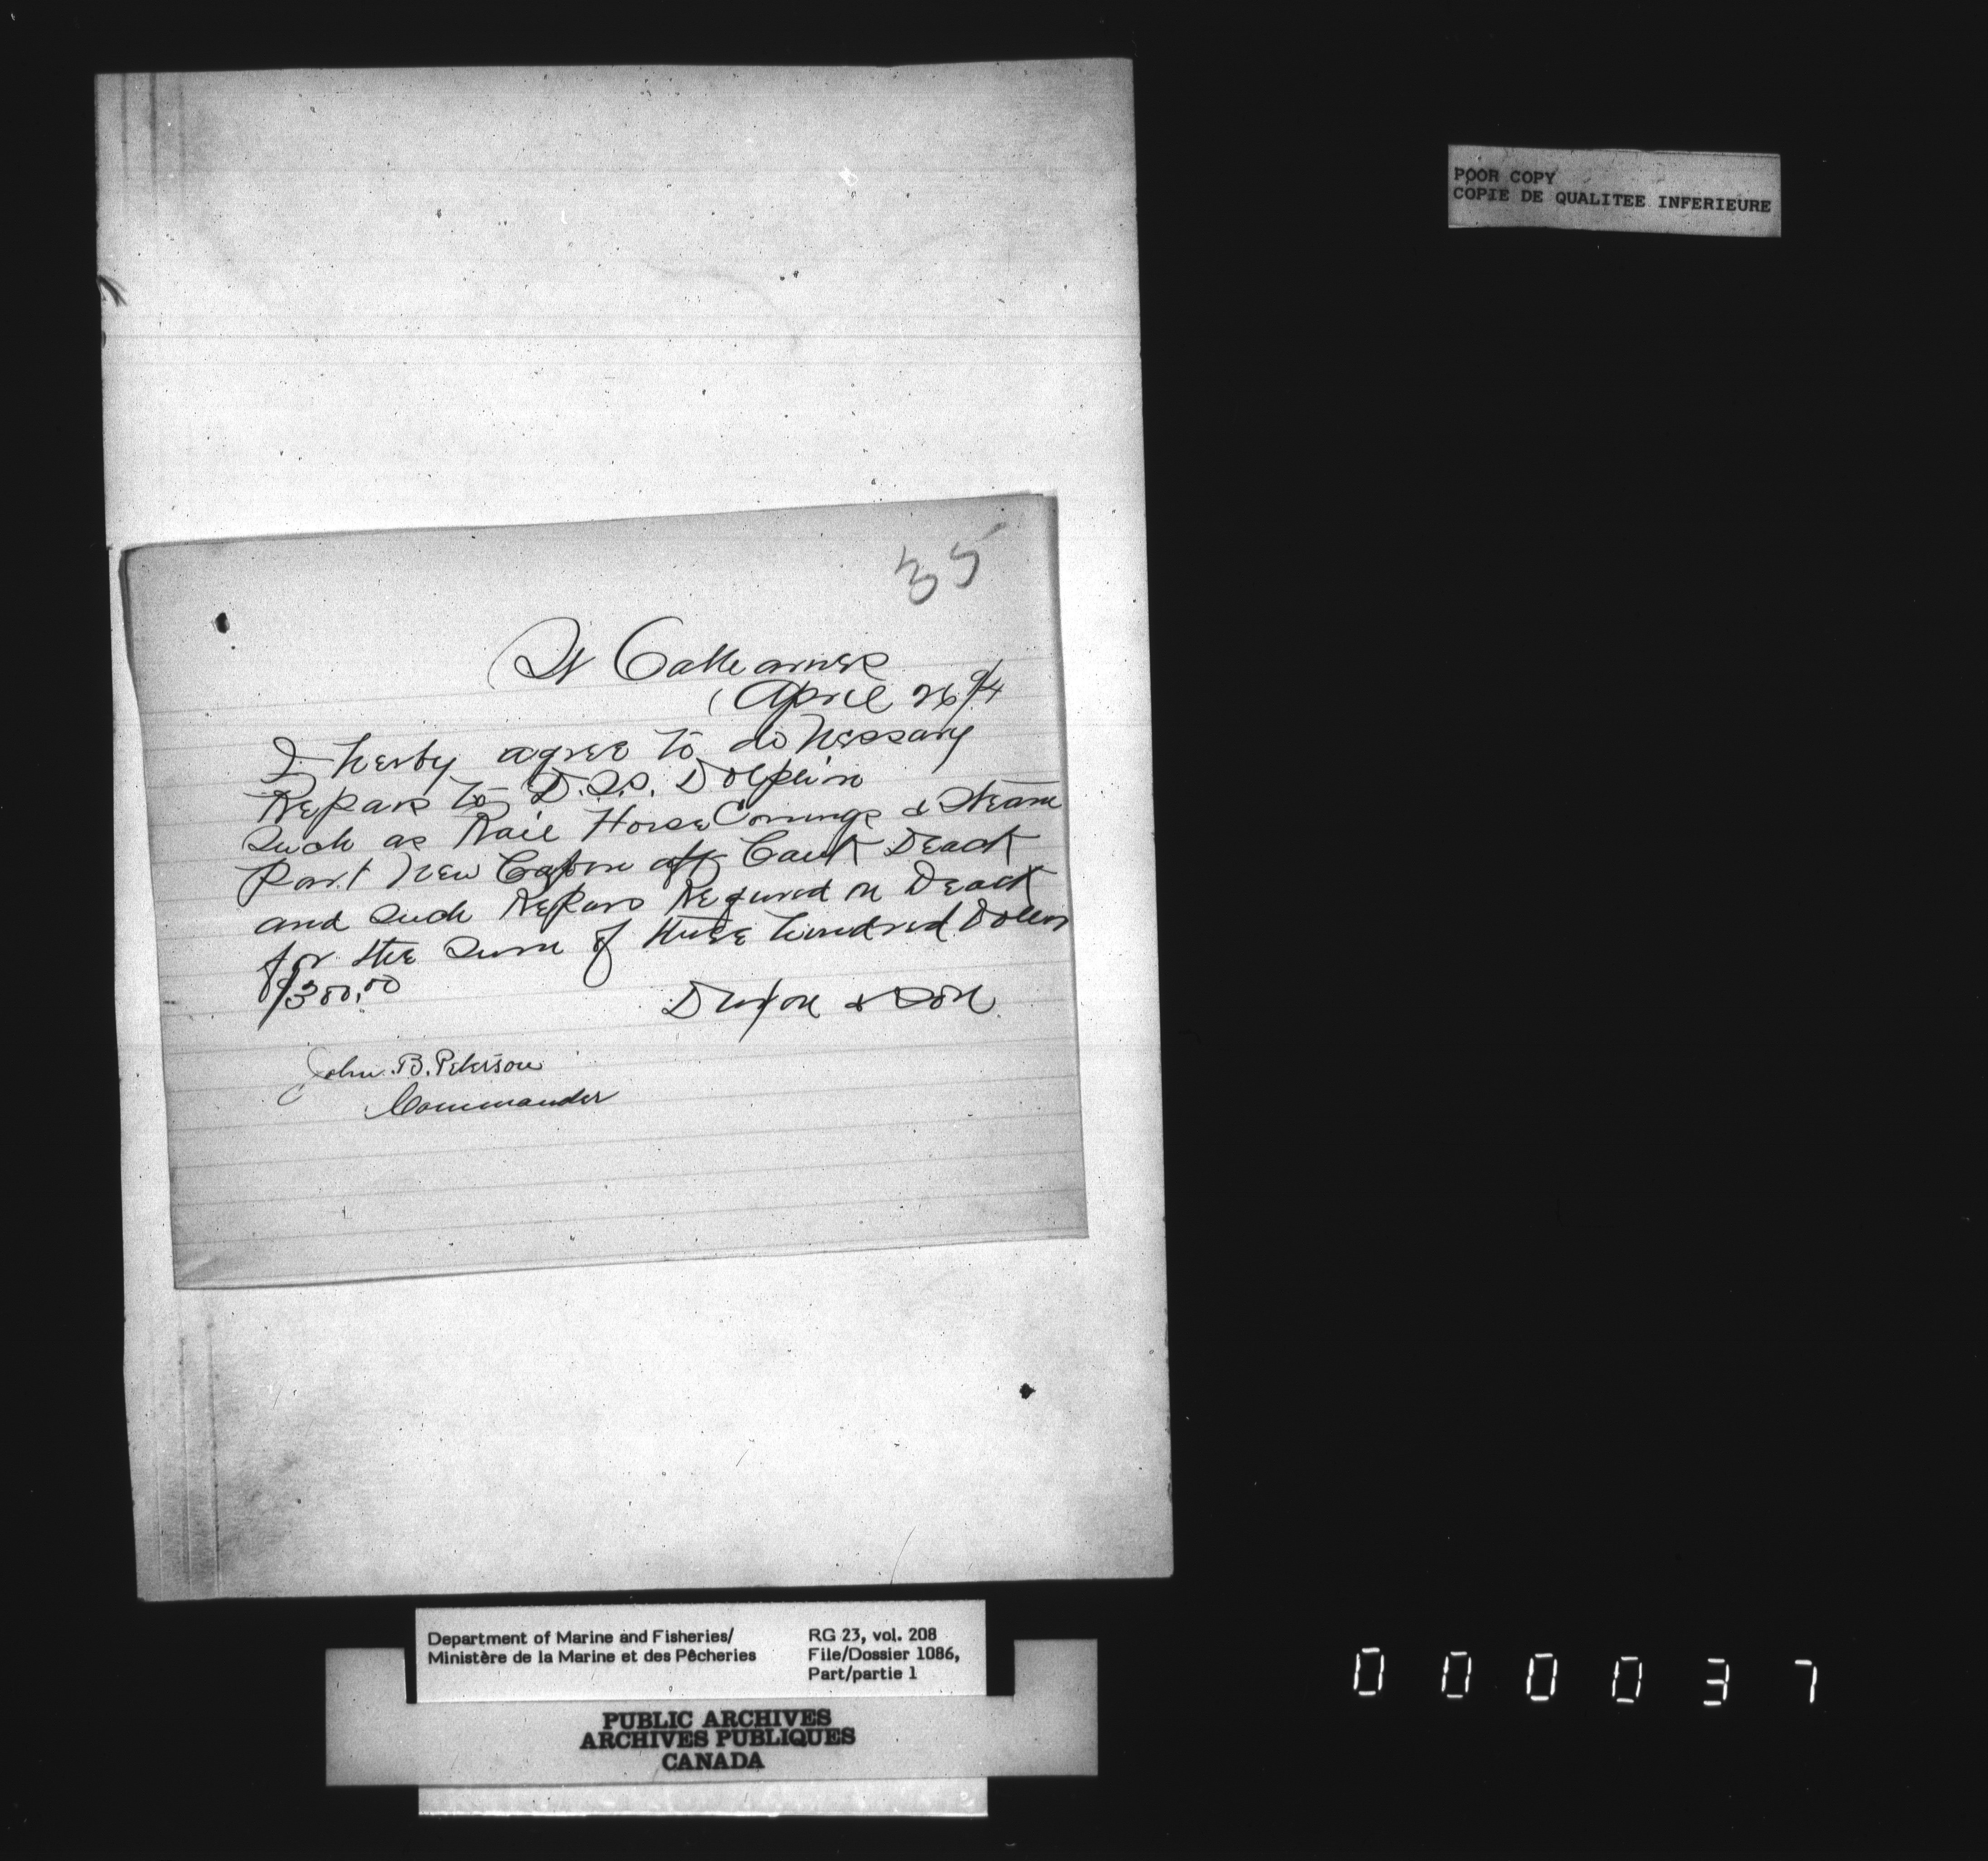 POOR COPY
COPIE DE QUALITEE INFERIEURE
35
St Catherines
April 26/94
I herby agree to do Nessary
Repars to D.S.S. Dolphin
Such as Rail Horse Comings & Steam
Part New Capon off Cault Deack
and Such Repars Requred on Deack
for the Sum of three hundred Dollers
$300.00
& Son
John B. Peterson
Commander
Department of Marine and Fisheries/
Ministère de la Marine et des Pêcheries
RG 23, vol. 208
File/Dossier 1086,
Part/partie 1
PUBLIC ARCHIVES
ARCHIVES PUBLIQUES
CANADA
000037